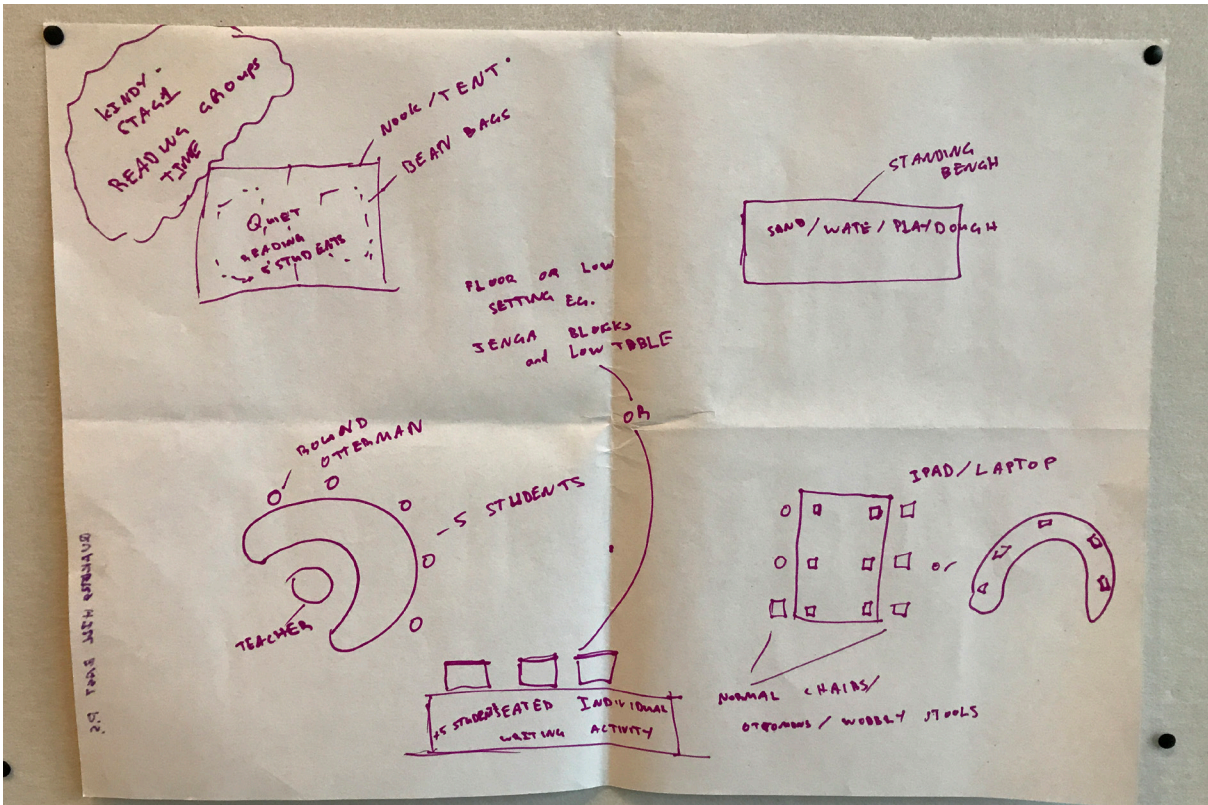 KINDY -
STAG1
READING GROUPS
TIME
NOOK/TENT
BEAN BAGS
QUIET
READING
5 STUDEATS
STANDING
BENGH
SAND/WATE/PLAYDOUGH
FLOOR OR LOW
SETTING EG.
JENGA BLOCKS
and LOW TABLE
OR
ROUND
OTTERMAN
5 STUDENTS
TEACHER
IPAD/LAPTOP
or
NORMAL CHAIRS/
OTTOMONS/WOBBLY STOOLS
SEATED INDIVIDUAL
WRITING ACTIVITY